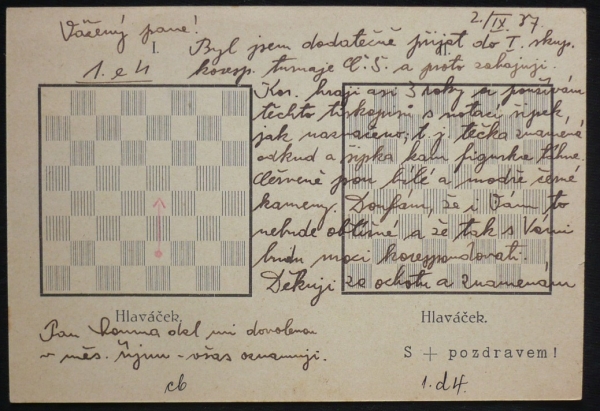 2./IX. 37.
Vážený pane!
I.
1. e4
Byl jsem dodatečně přijat do I. skup.
koresp. turnaje Č.S. a proto zahajuji.
Kor. hraji asi 3 roky a používám
těchto tiskopisů s notací šipek,
jak naznačeno, t. j. tečka znamená
odkud a šipka kam figurka táhne.
Červené jsou bílé a modré černé
kameny. Doufám, že i Vám to
nebude obtížné a že tak s Vámi
budu moci korespondovati.
Děkuji za ochotu a znamenám
Hlaváček.
Hlaváček.
Pan dal mi dovolenou
v měs. říjnu - včas oznamuji.
S + pozdravem!
cb
1. d4.